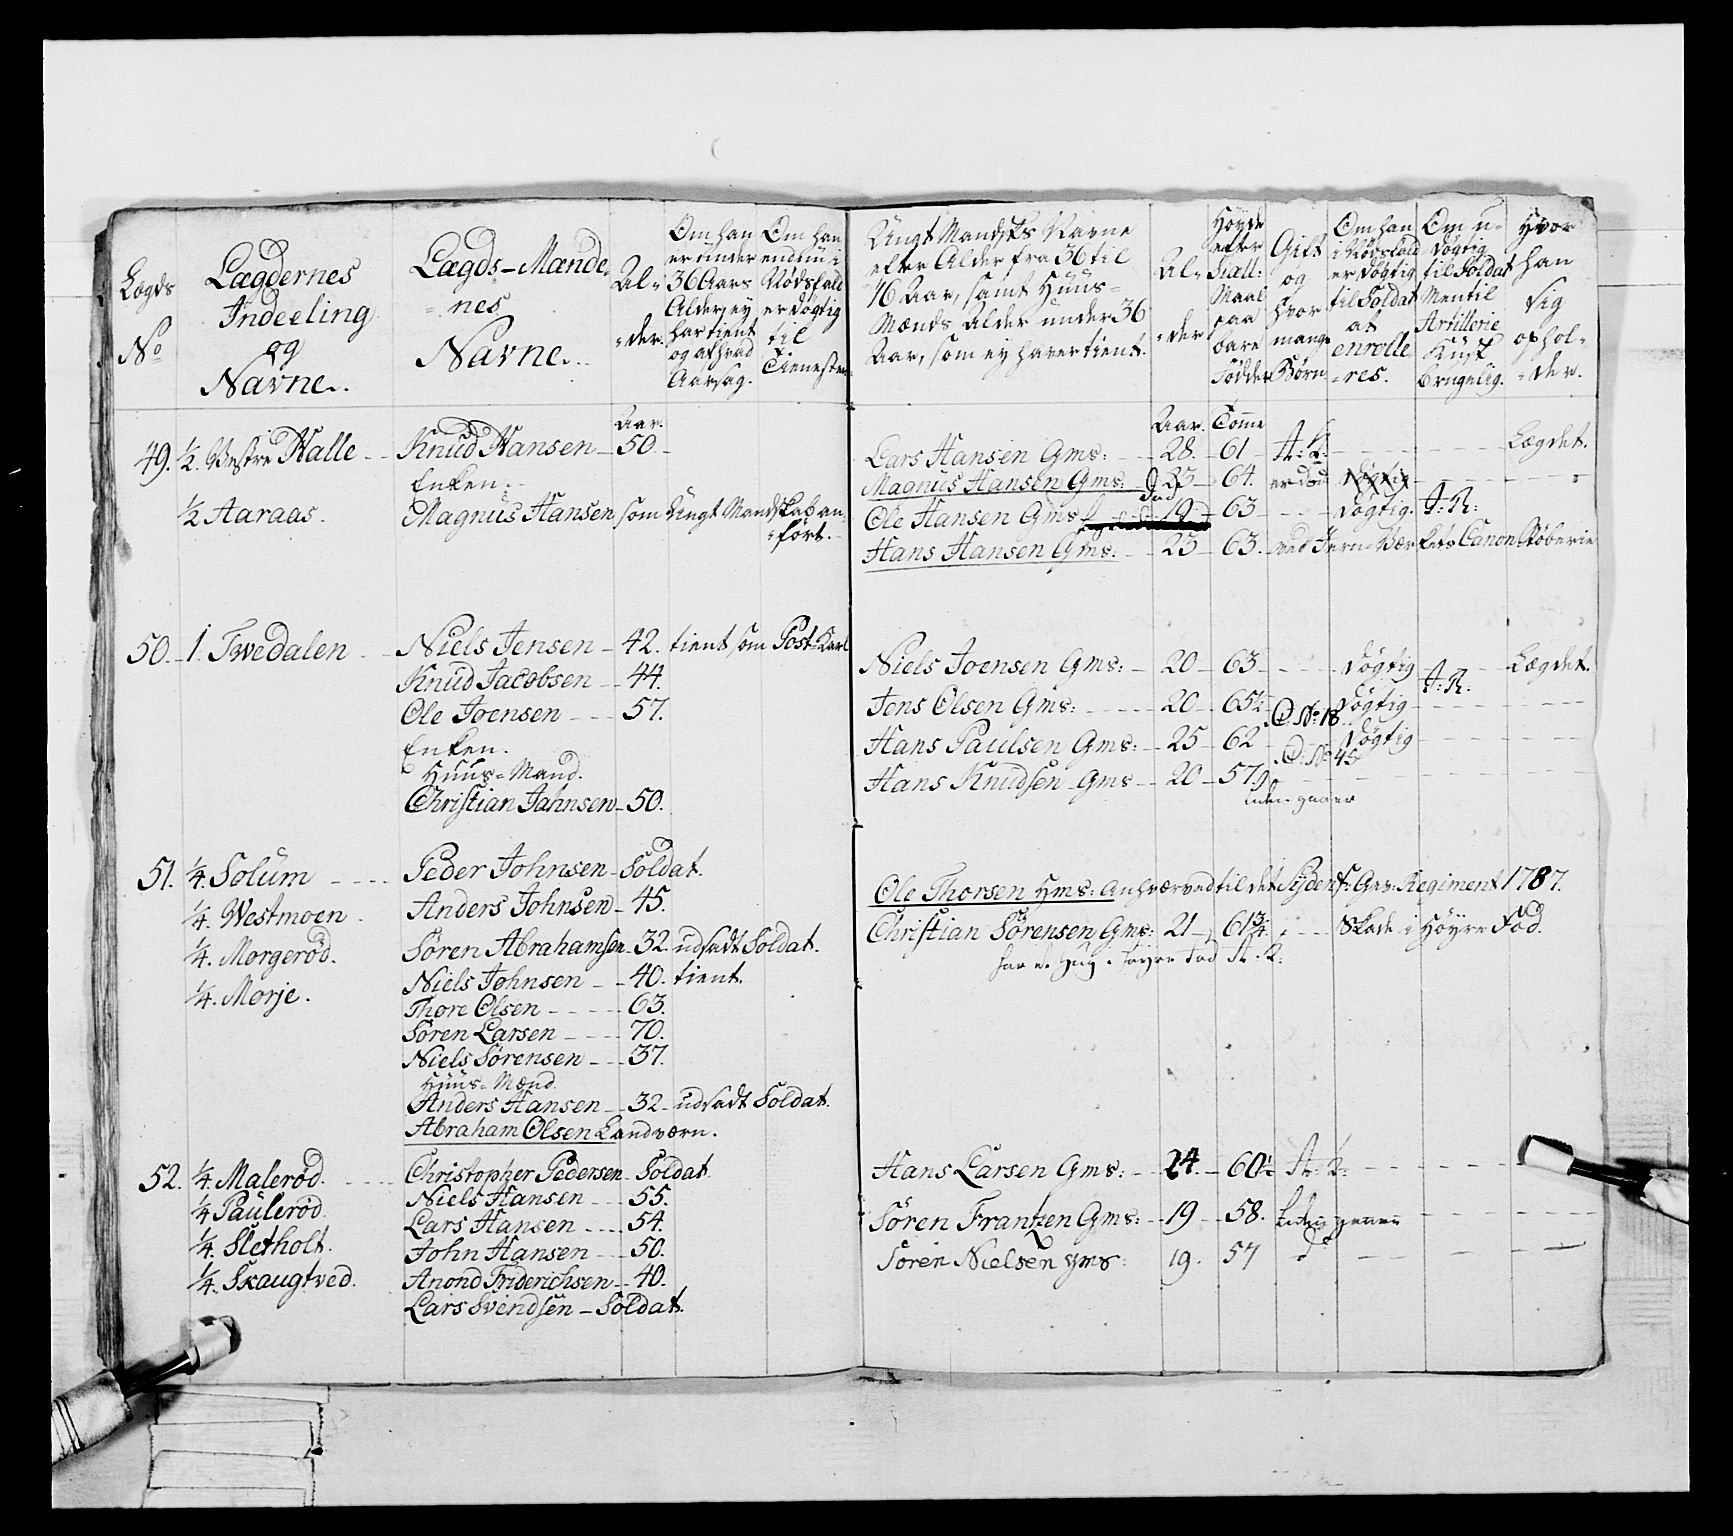 Lægds
No
Lægdernes
Indeeling
og
Navne.
Lægds-Mænde-
nes
Navne.
Al-
-der.
Om han
er under
36 Aars
Alder, ey
har tient
og af hvad
Aarsag.
Om han
endnu i
Nødsfald
er døgtig
til
Tienesten
Ungt Mandskbs Navne
efter Alder fra 36 til
16 Aar, samt Huus-
Mænds Alder under 36
Aar, som ey haver tient.
Al-
-der
Høyde
efter
Siæll:
Maal
paa
bare
Fødder
Gift
og
hvor
mange
Børn
Om han
i Nødsfald
er døgtig
til Soldat
at
enrolle-
-res.
Om u-
døgtig
til Soldat
Men til
Artillerie
Kusk
brugelig.
Hvor
han
sig
ophol-
-der.
Aar.
Aar. Tomme
49. ½. Vestre Halle Knud Hansen 50.
Enken.
½ Aaraas. Magnus Hansen som Ungt Mandskab an-
-ført.
Lars Hansen Gms: 28. 61 Lægdet.
Magnus Hansen Gms: 23 64. er død Døgtig
død
Ole Hansen Gms 19 63 Døgtig. J: R:
Hans Hansen Gms: 23 63. ved Jern-Værkets Canon Støberie
50. 1. Twedalen Niels Jensen 42. tient som Post-Karl
Knud Jacobsen 44.
Ole Joensen 57.
Enken.
Huus-Mand.
Christian Jahnsen 50.
Niels Joensen Gms: 20 63 Døgtig Lægdet.
J: R:
Jens Olsen Gms: 20 65½ Døgtig
C. No: 18
Hans Paulsen Gms: 25 62 Døgtig
C: No 45
Hans Knudsen Gms 20 57.
51. ¼. Solum Peder Johnsen Soldat.
¼. Westmoen Anders Johnsen 45.
¼. Morgerød. Søren Abrahamsen 32. udsadt Soldat.
¼. Morje. Niels Johnsen 40. tient.
Thore Olsen 63.
Søren Larsen 70.
Niels Sørensen 37.
Huus-Mænd
Anders Hansen 32 udsadt Soldat.
Abraham Olsen Landværn.
Ole Thorsen Hms: anhværved til det Sydenf: Gev: Regiment 1787.
Christian Sørensen Gms: 21 61¾ Skade i Høyre Fod.
52. ¼. Malerød. Christopher Pedersen Soldat
¼ Paulerød Niels Hansen 55.
¼. Sletholt. Lars Hansen 54.
¼. Skaugtved. John Hansen 50.
Anond Friderichsen 40.
Lars Svendsen Soldat.
Hans Larsen Gms: 24. 60½
Søren Frantzen Gms: 19 58.
Søren Nielsen Gms: 19. 57